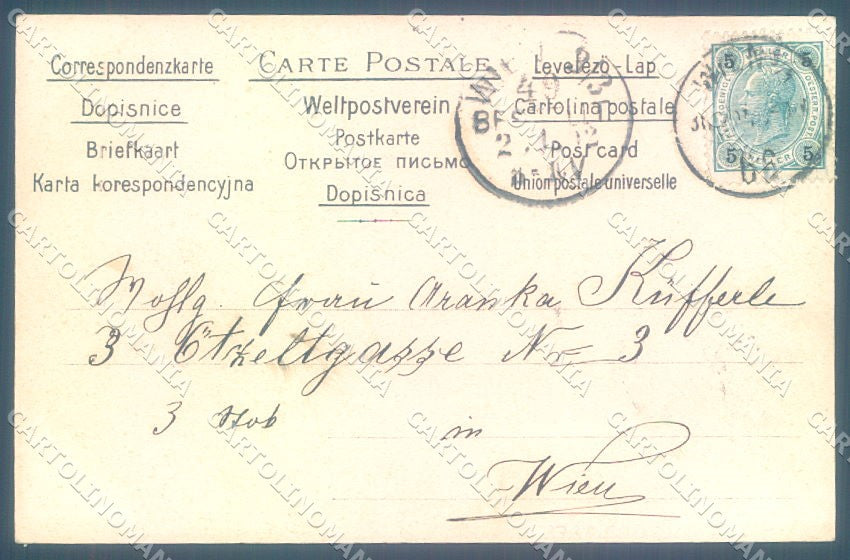 Correspondenzkarte
Dopisnice
Briefkaart
Karta korespondencyjna
CARTE POSTALE
Weltpostverein
Postkarte
ОТКРЫТОЕ ПИСЬМО
Dopisnica
Levelező-Lap
Cartolina postale
Post card
Union postale universelle
WIEN
49
BESTELLT
5 5
5 5
Wohlg. Frau Aranka Küfferle
3 Ötzeltgasse No 3
3 Stok
in
Wien
CARTOLINOMANIA